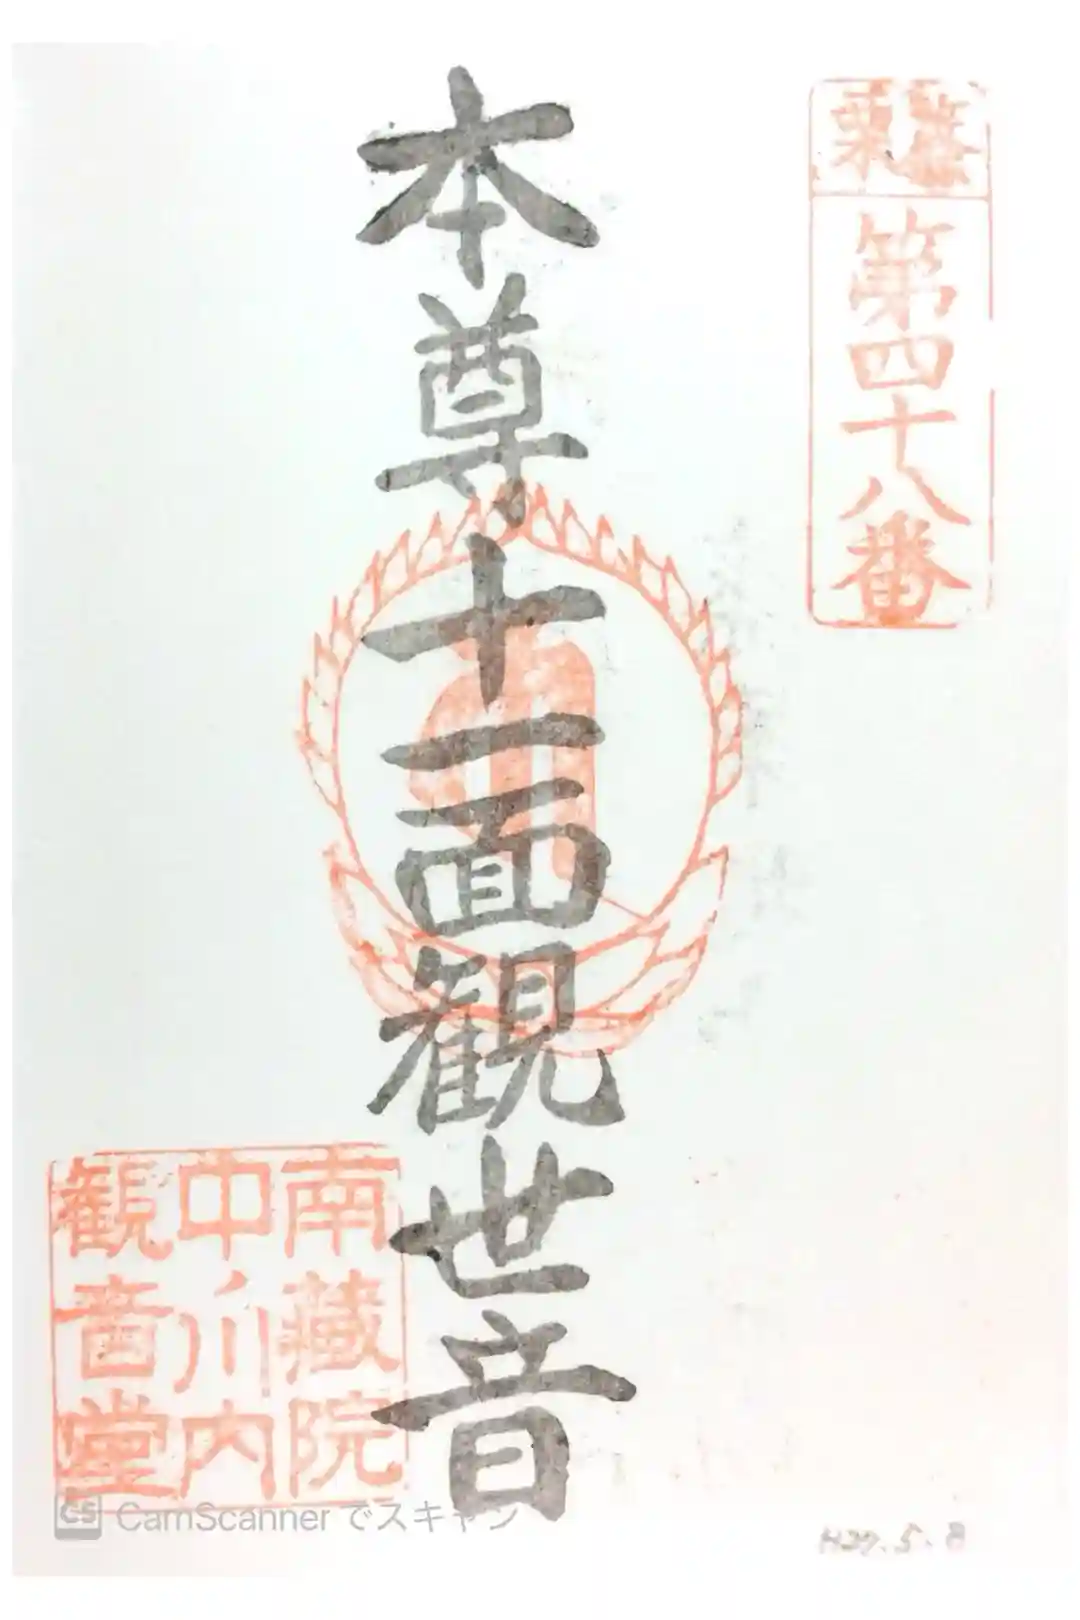 篠栗
第四十八番
本尊十一面観世音
南蔵院
中ノ川内
観音堂
H27.5.8
CS CamScanner でスキャン